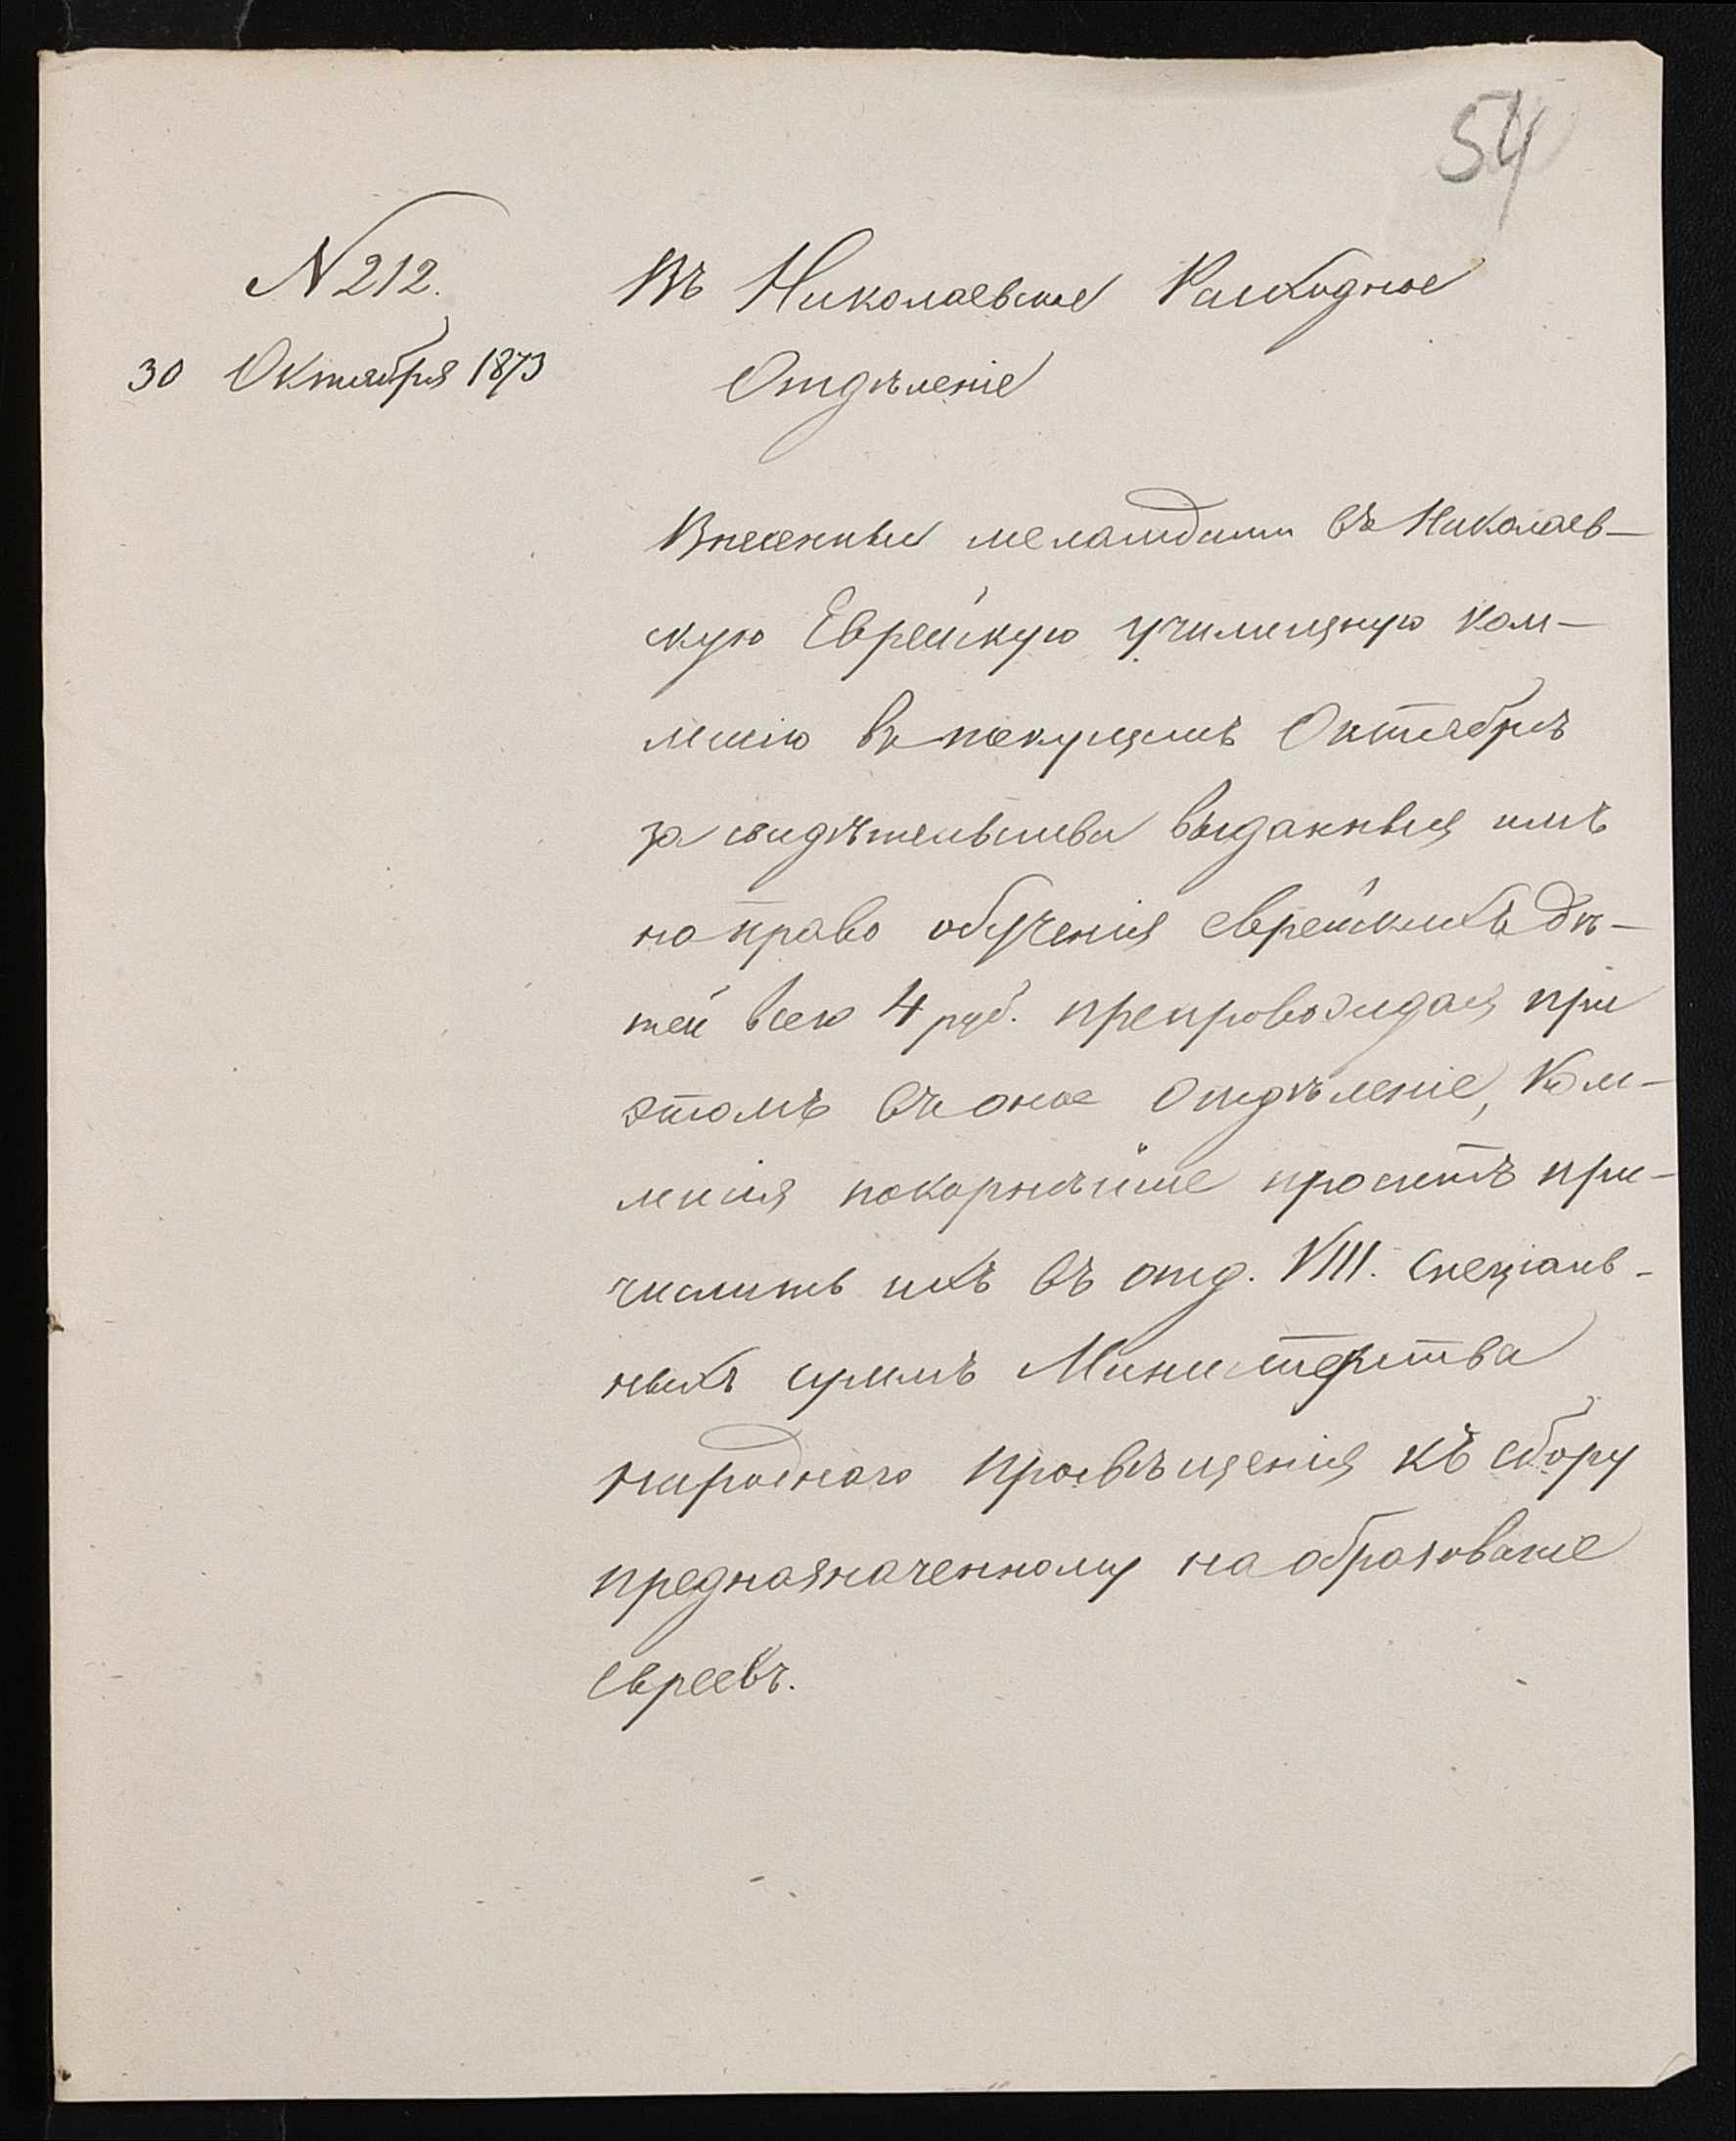 54
N 212.
30 Октября 1873
Въ Николаевское Расходное
Отдѣленіе
Внесенные меламдами въ Николаев-
скую Еврейскую училищную Ком-
мисію въ текущемъ Октябрѣ
за свидѣтельства выданныя имъ
на право обученія еврейскихъ дѣ-
тей всего 4 руб. препровождая при
этомъ въ оное Отдѣленіе, Ком-
мисія покорнѣйше проситъ при-
числить ихъ въ отд. VIII. спеціаль-
ныхъ суммъ Министерства
народнаго просвѣщенія къ сбору
предназначенному на образованіе
евреевъ.